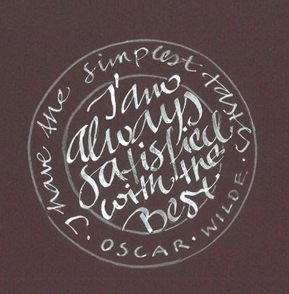 I have the simplest tastes.
I am
always
satisfied
with the
Best.
· OSCAR · WILDE ·